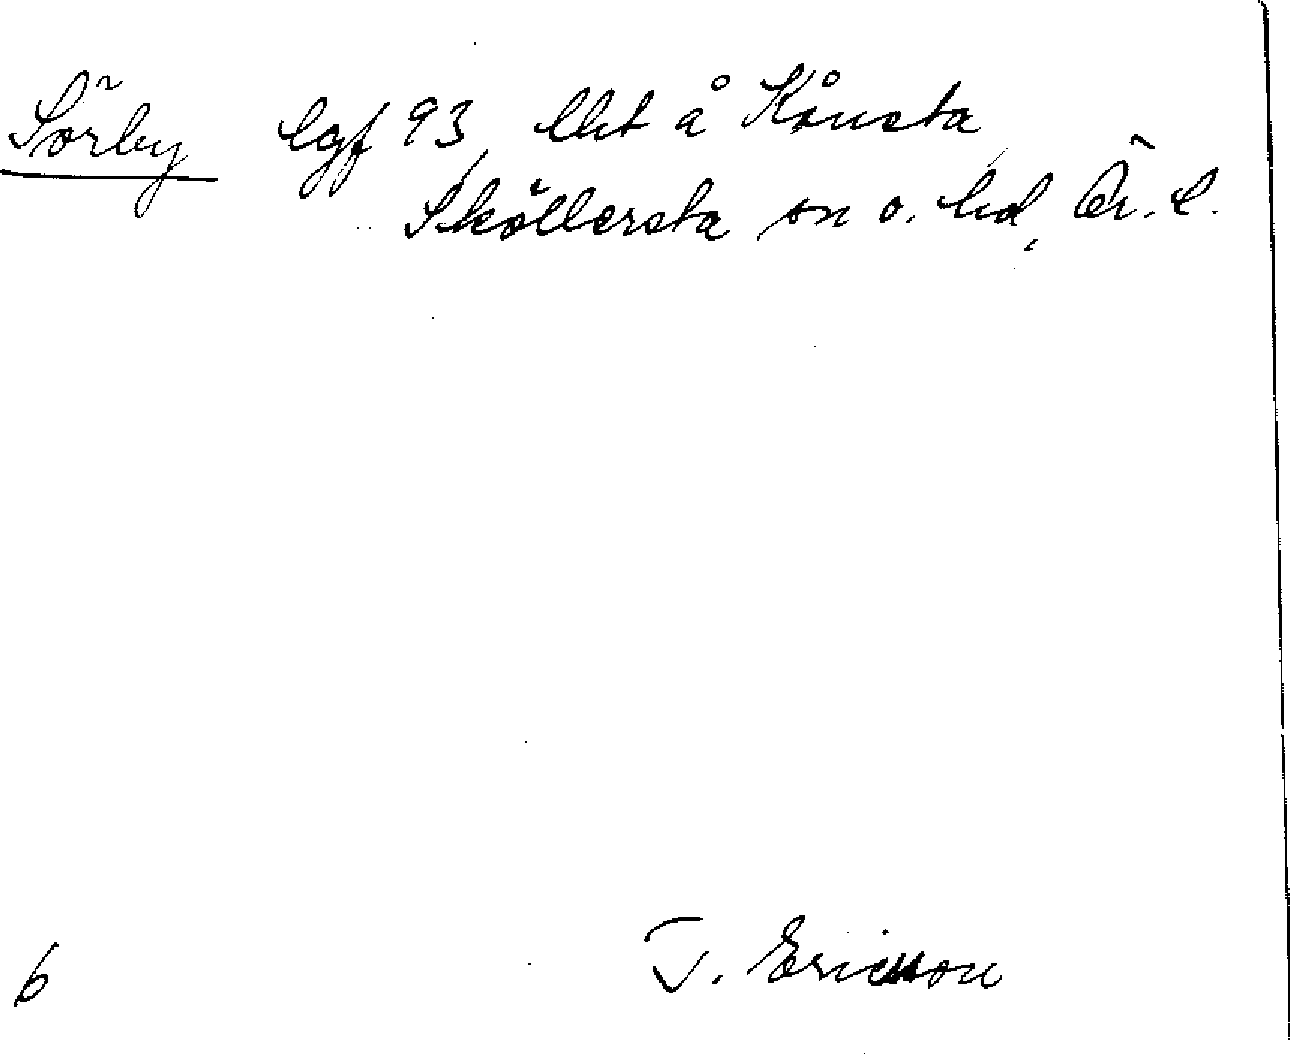 Sörby lgf 93, lht å Kånsta
Sköllersta sn o. hd, Ör. l.
6
T. Ericsson